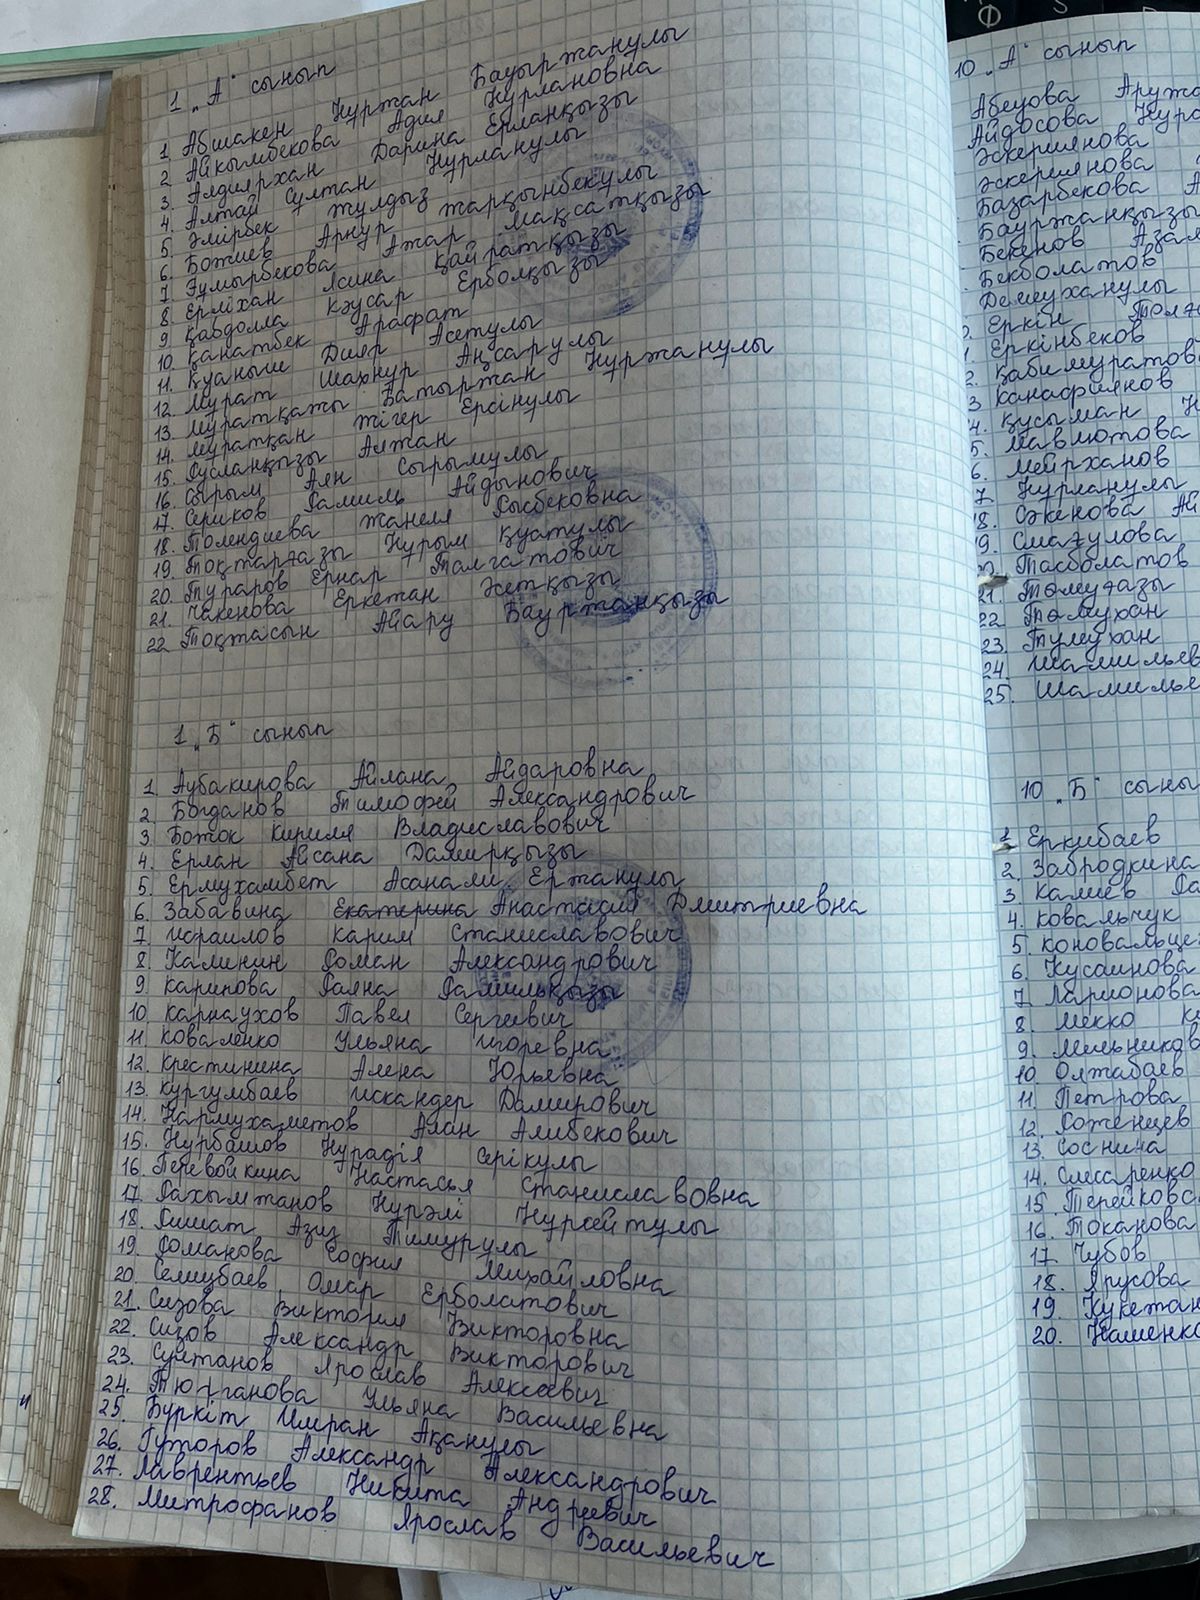 1 „А" сынып
1 Абшакен Нуржан Бауыржанулы
2 Айкымбекова Адия Нурлановна
3. Алдиярхан Дарина Ерланқызы
4. Алтай Султан Нурланулы
5. Әмірбек Жулдыз Жарқынбекулы
6. Божиев Арнур
7. Ғумырбекова Ажар Мақсатқызы
8. Ерліхан Ясина Қайратқызы
9. Қабдолла Кәусар Ерболқызы
10. Қанатбек Арафат
11. Қуаныш Дияр Асетулы
12. Мурат Шахнур Аңсарулы
13. Муратқажы Батыржан Нуржанулы
14. Муратқан Жігер Ерсінулы
15. Русланқызы Алжан
16. Сырым Аян Сырымулы
17. Сериков Рамиль Айдынович
18. Толендиева Жанеля Рысбековна
19. Тоқтарғазы Нурым Қуатулы
20. Тураров Ернар Талгатович
21. Чакенова Еркежан Жетқызы
22 Тоқтасын Айару Бауржанқызы
1 „Б" сынып
1 Аубакирова Айлана Айдаровна
2 Богданов Тимофей Александрович
3 Божок Кирилл Владиславович
4. Ерлан Айсана Дамирқызы
5. Ермухамбет Асанали Ержанулы
6. Забавина Екатерина Анастасия Дмитриевна
7 Исраилов Карим Станиславович
8 Калинин Роман Александрович
9 Карипова Раяна Рамильқызы
10 Карнаухов Павел Сергеевич
11. Коваленко Ульяна Игоревна
12. Крестинина Алена Юрьевна
13. Кургумбаев Искандер Дамирович
14. Нармухаметов Алан Алибекович
15. Нурбашов Нурадія Серікулы
16. Перевойкина Настасья Станиславовна
17. Рахымжанов Нурәлі Нурсейтулы
18. Ришат Азиз Тимурулы
19. Романова София Михайловна
20. Селиубаев Омар Ерболатович
21. Сизова Виктория Викторовна
22. Сизов Александр Викторович
23. Султанов Ярослав Алексеевич
24. Тюрганова Ульяна Васильевна
25. Буркіт Имран Ақанулы
26. Гуторов Александр Александрович
27. Лаврентьев Никита Андреевич
28. Митрофанов Ярослав Васильевич
10 „А" сынып
Абеуова Аружа
Айдосова Нура
Әскериянова
Әскериянова
Базарбекова А
Бауржанқызы
Бекенов Азам
Бекболатов
Демеуханулы
Еркін Толғ
Еркінбеков
Қабимуратов
3 Канафиянов
4. Қусыман Н
5. Мавлютова
6. Мейрханов
7 Нурланулы
18. Сәкенова Ай
19. Смағулова
20 Тасболатов
21. Толеуғазы
22 Толеухан
23 Тулеухан
24. Шамильев
25. Шамилье
10 „Б" сыны
1 Еркибаев
2. Забродкина
3 Калиев Ра
4. Ковальчук
5 Коновальце
6. Кусаинова
7 Ларионова
8 Мекко К
9. Мельников
10 Олжабаев
11 Петрова
12. Роженцев
13. Соснина
14. Слесаренко
15 Терейковс
16. Токанова
17 Чубов
18. Ярусова
19. Кукежан
20. Науменко